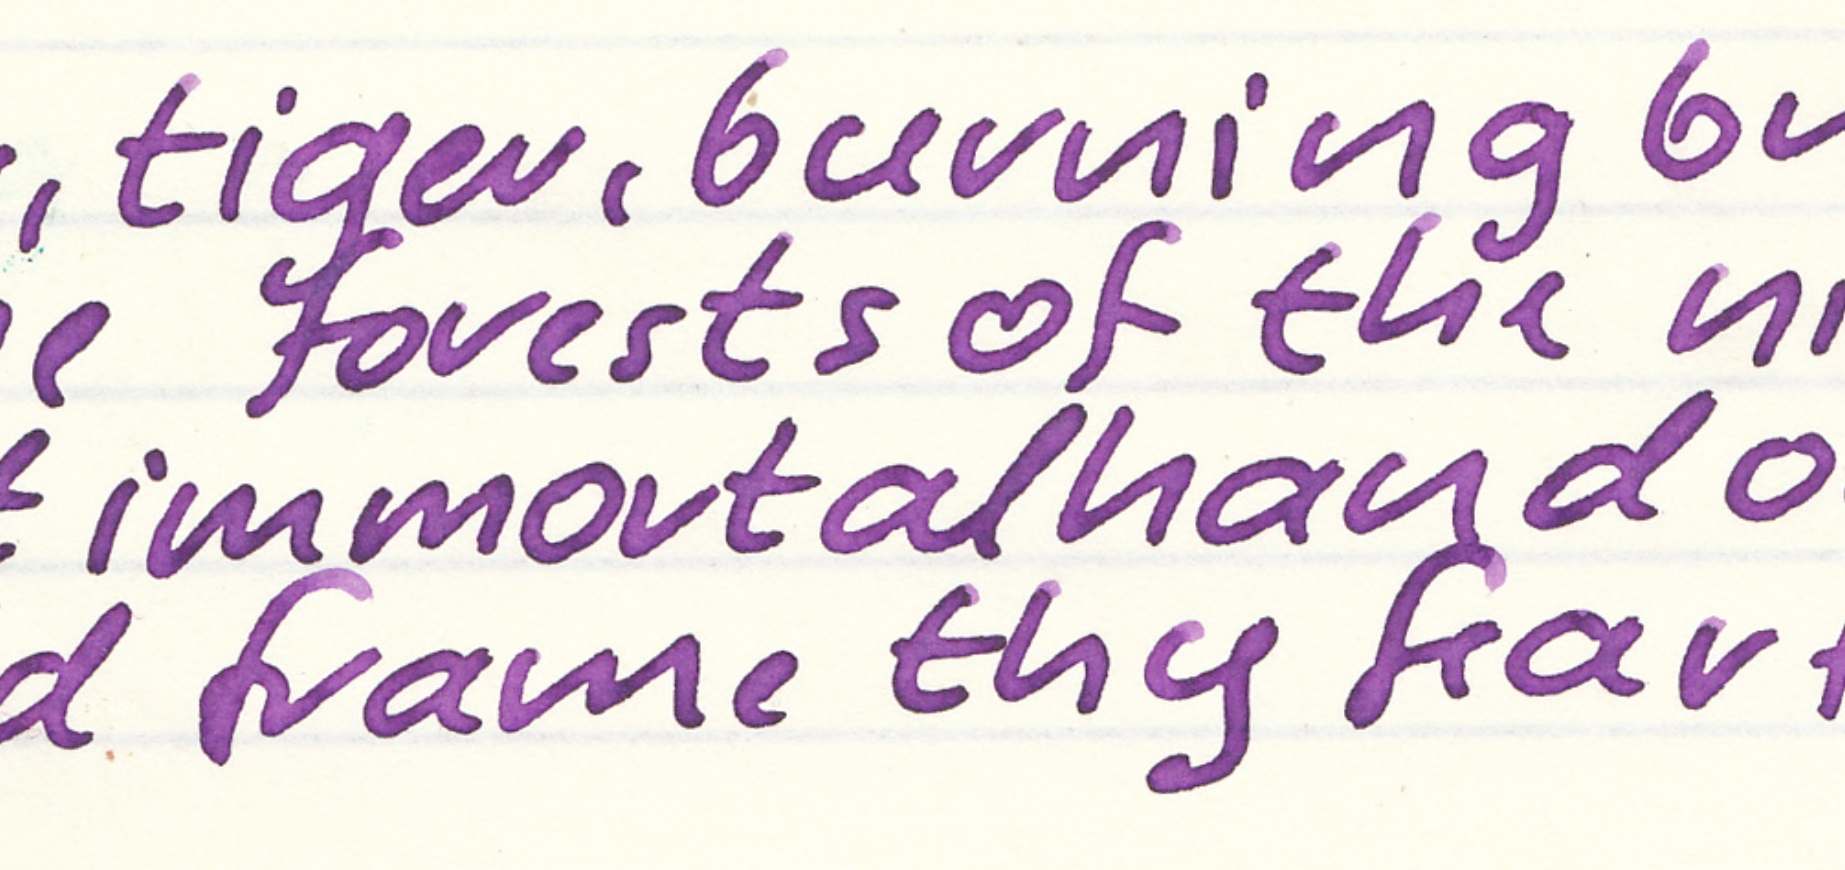 , tiger, burning br
e forests of the ni
t immortal hand o
d frame thy fear f